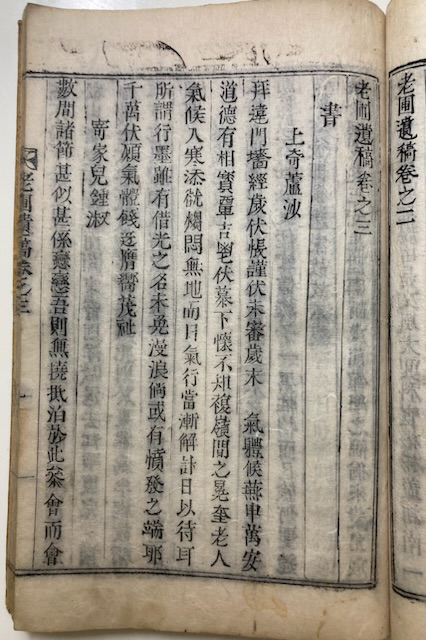 老圃遺稿卷之二
老圃遺稿卷之三
書
上奇蘆沙
拜違門墻經歲伏悵謹伏未審歲末 氣體候燕申萬安
道德有相寶覃吉鬯伏慕下懷不 複嶺間之晃奎老人
氣候入寒添 煩悶無地而日氣行當漸解計日以待耳
所謂行墨雖有借光之名未免漫浪倘或有憤發之端耶
千萬伏願氣體餞迓膺嚮茂祉
寄家兒鍾淑
數間諸節甚似甚係戀戀吾則無撓 泊於此 會而會
老圃遺稿卷之三 一